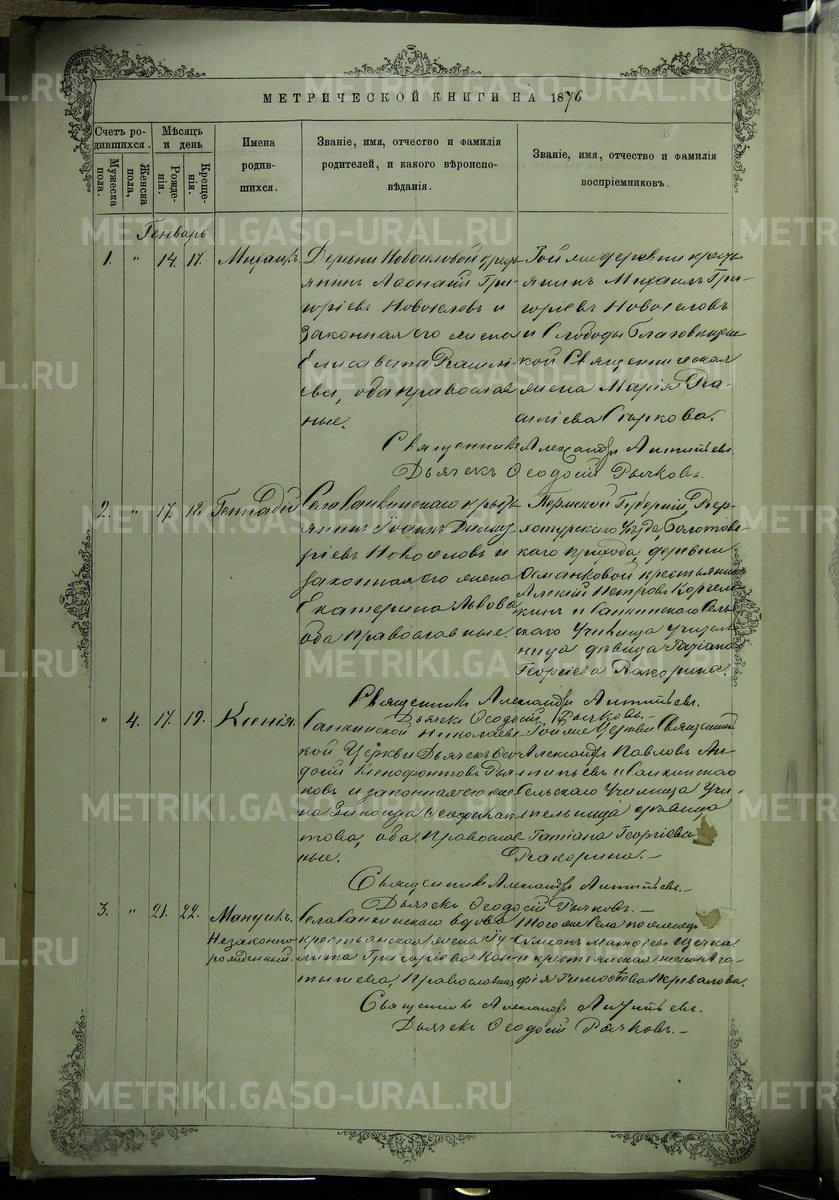 МЕТРИЧЕСКОЙ КНИГИ НА 1876
Счетъ родившихся.
Мужеска пола.
Женска пола.
Мѣсяцъ и день
Рожденія.
Крещенія.
Имена родившихся.
Званіе, имя, отчество и фамилія родителей, и какого вѣроисповѣданія.
Званіе, имя, отчество и фамилія воспріемниковъ.
Генварь
1. " 14. 17. Михаилъ.
Деревни Новоселовой кресть
янинъ Григ
оріевъ Новоселовъ и
законная его жена
Елисавета Васильевна
, оба православ
ные.
Той же деревни кресть
янинъ Михаилъ Григ
оріевъ Новоселовъ
и Слободы Благовѣщенс
кой Священническая
жена Марія Ва
силіева Сыркова.
Священникъ Александръ
Дьячекъ Ѳеодосій Рычковъ.
2. " 17. 18. Геннадій
Села Санкинскаго кресть
янинъ Іоаннъ Димит
ріевъ Новоселовъ и
законная его жена
Екатерина Львова
оба православные.
Пермской Губерніи, Вер
хотурскаго Уѣзда,
каго прихода, деревни
крестьянинъ
Алексій Петровъ
и Санкинскаго Сель
скаго Училища учитель
ница дѣвица Татіана
Георгіева Вакорина.
Священникъ Александръ
Дьячекъ Ѳеодосій Рычковъ.
" 4. 17. 19. Ксенія
Санкинской Николаевс
кой Церкви Дьячекъ Ѳео
досій Ксенофонтовъ Рыч
ковъ и законная его же
на Зинаида
, оба Православ
ные.
Той же Церкви Священникъ
Александръ Павловъ
и Санкинскаго
Сельскаго Училища Учи
тельница дѣвица
Татіана Георгіева
Вакорина.
Священникъ Александръ
Дьячекъ Ѳеодосій Рычковъ.
3. " 21. 22. Мануилъ.
Незаконно-
рожденный.
Села Санкинскаго вдова
крестьянская жена Іу
лита Григоріева
, Православная
Того же Села поселенецъ
Симонъ
и крестьянская жена Ага
фія Тимоѳеева Перевалова.
Священникъ Александръ
Дьячекъ Ѳеодосій Рычковъ.
METRIKI.GASO-URAL.RU